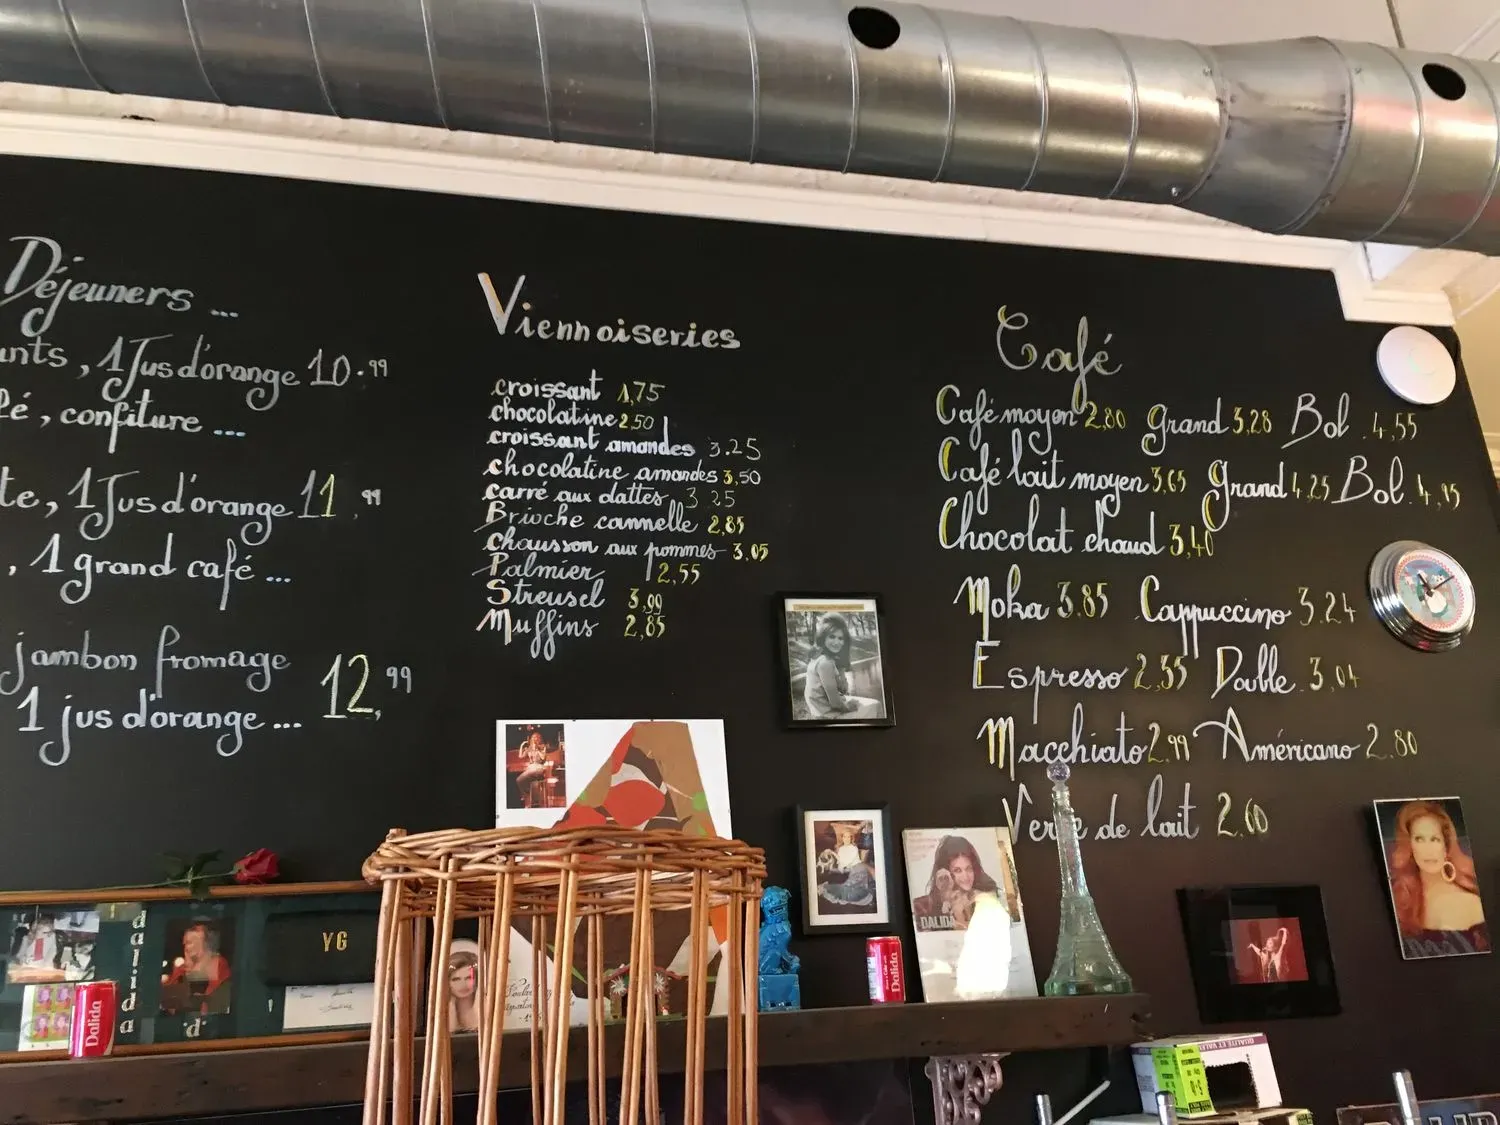 Déjeuners ...
, 1 Jus d'orange 10.99
, confiture ...
, 1 Jus d'orange 11,99
, 1 grand café ...
jambon fromage
12,99
1 jus d'orange ...
Viennoiseries
croissant 1,75
chocolatine 2.50
croissant amandes 3.25
chocolatine amandes 3,50
carré aux dattes 3.25
Brioche cannelle 2,85
chausson aux pommes 3,05
Palmier 2,55
Streusel 3,99
Muffins 2,85
Café
Café moyen 2,80 Grand 3,28 Bol 4,55
Café lait moyen 3,65 Grand 4,25 Bol 4,95
Chocolat chaud 3,40
Moka 3.85 Cappuccino 3.24
Espresso 2,35 Double 3,04
Macchiato 2.99 Américano 2.80
Verre de lait 2.00
DALIDA
dalida
YG
"d"
Dalida
Dalida
QUALITÉ ET